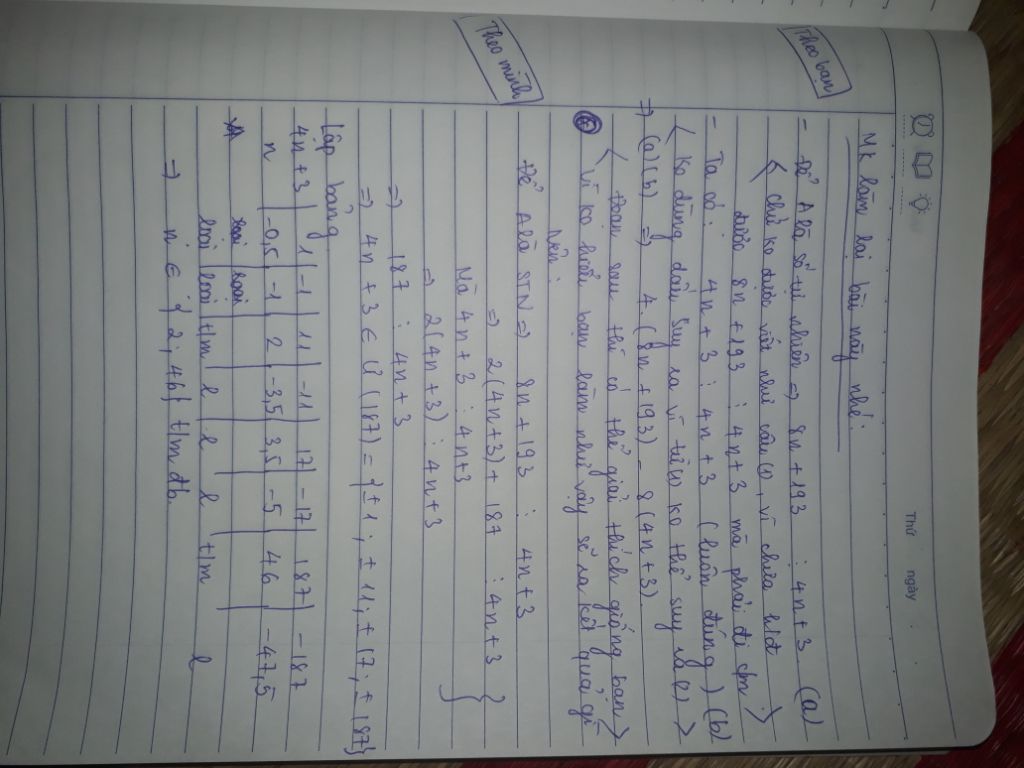 Thứ
ngày
Mk làm lại bài này nhé:
Theo bạn
- Để A là số tự nhiên => 8n + 193 ⋮ 4n + 3 (a)
< chứ ko được viết như câu (1), vì chưa biết
được 8n + 193 ⋮ 4n + 3 mà phải đi cm >
- Ta có: 4n + 3 ⋮ 4n + 3 (luôn đúng) (b)
< Ko dùng dấu suy ra vì từ (1) ko thể suy ra (2) >
=> (a)(b) => 4.(8n + 193) - 8(4n + 3)
< Đoạn sau thì có thể giải thích giống bạn >
Vì ko hiểu bạn làm như vậy sẽ ra kết quả gì
Theo mình
Nên:
Để A là STN => 8n + 193 ⋮ 4n + 3
=> 2(4n+3) + 187 ⋮ 4n + 3
Mà 4n + 3 ⋮ 4n+3
=> 2(4n+3) ⋮ 4n+3
=> 187 ⋮ 4n+3
=> 4n + 3 ∈ Ư(187) = {±1; ±11; ±17; ±187}
Lập bảng
4n+3 | 1 | -1 | 11 | -11 | 17 | -17 | 187 | -187
n | -0,5 | -1 | 2 | -3,5 | 3,5 | -5 | 46 | -47,5
loại loại t/m l l l t/m l
=> n ∈ {2, 46} t/m đb